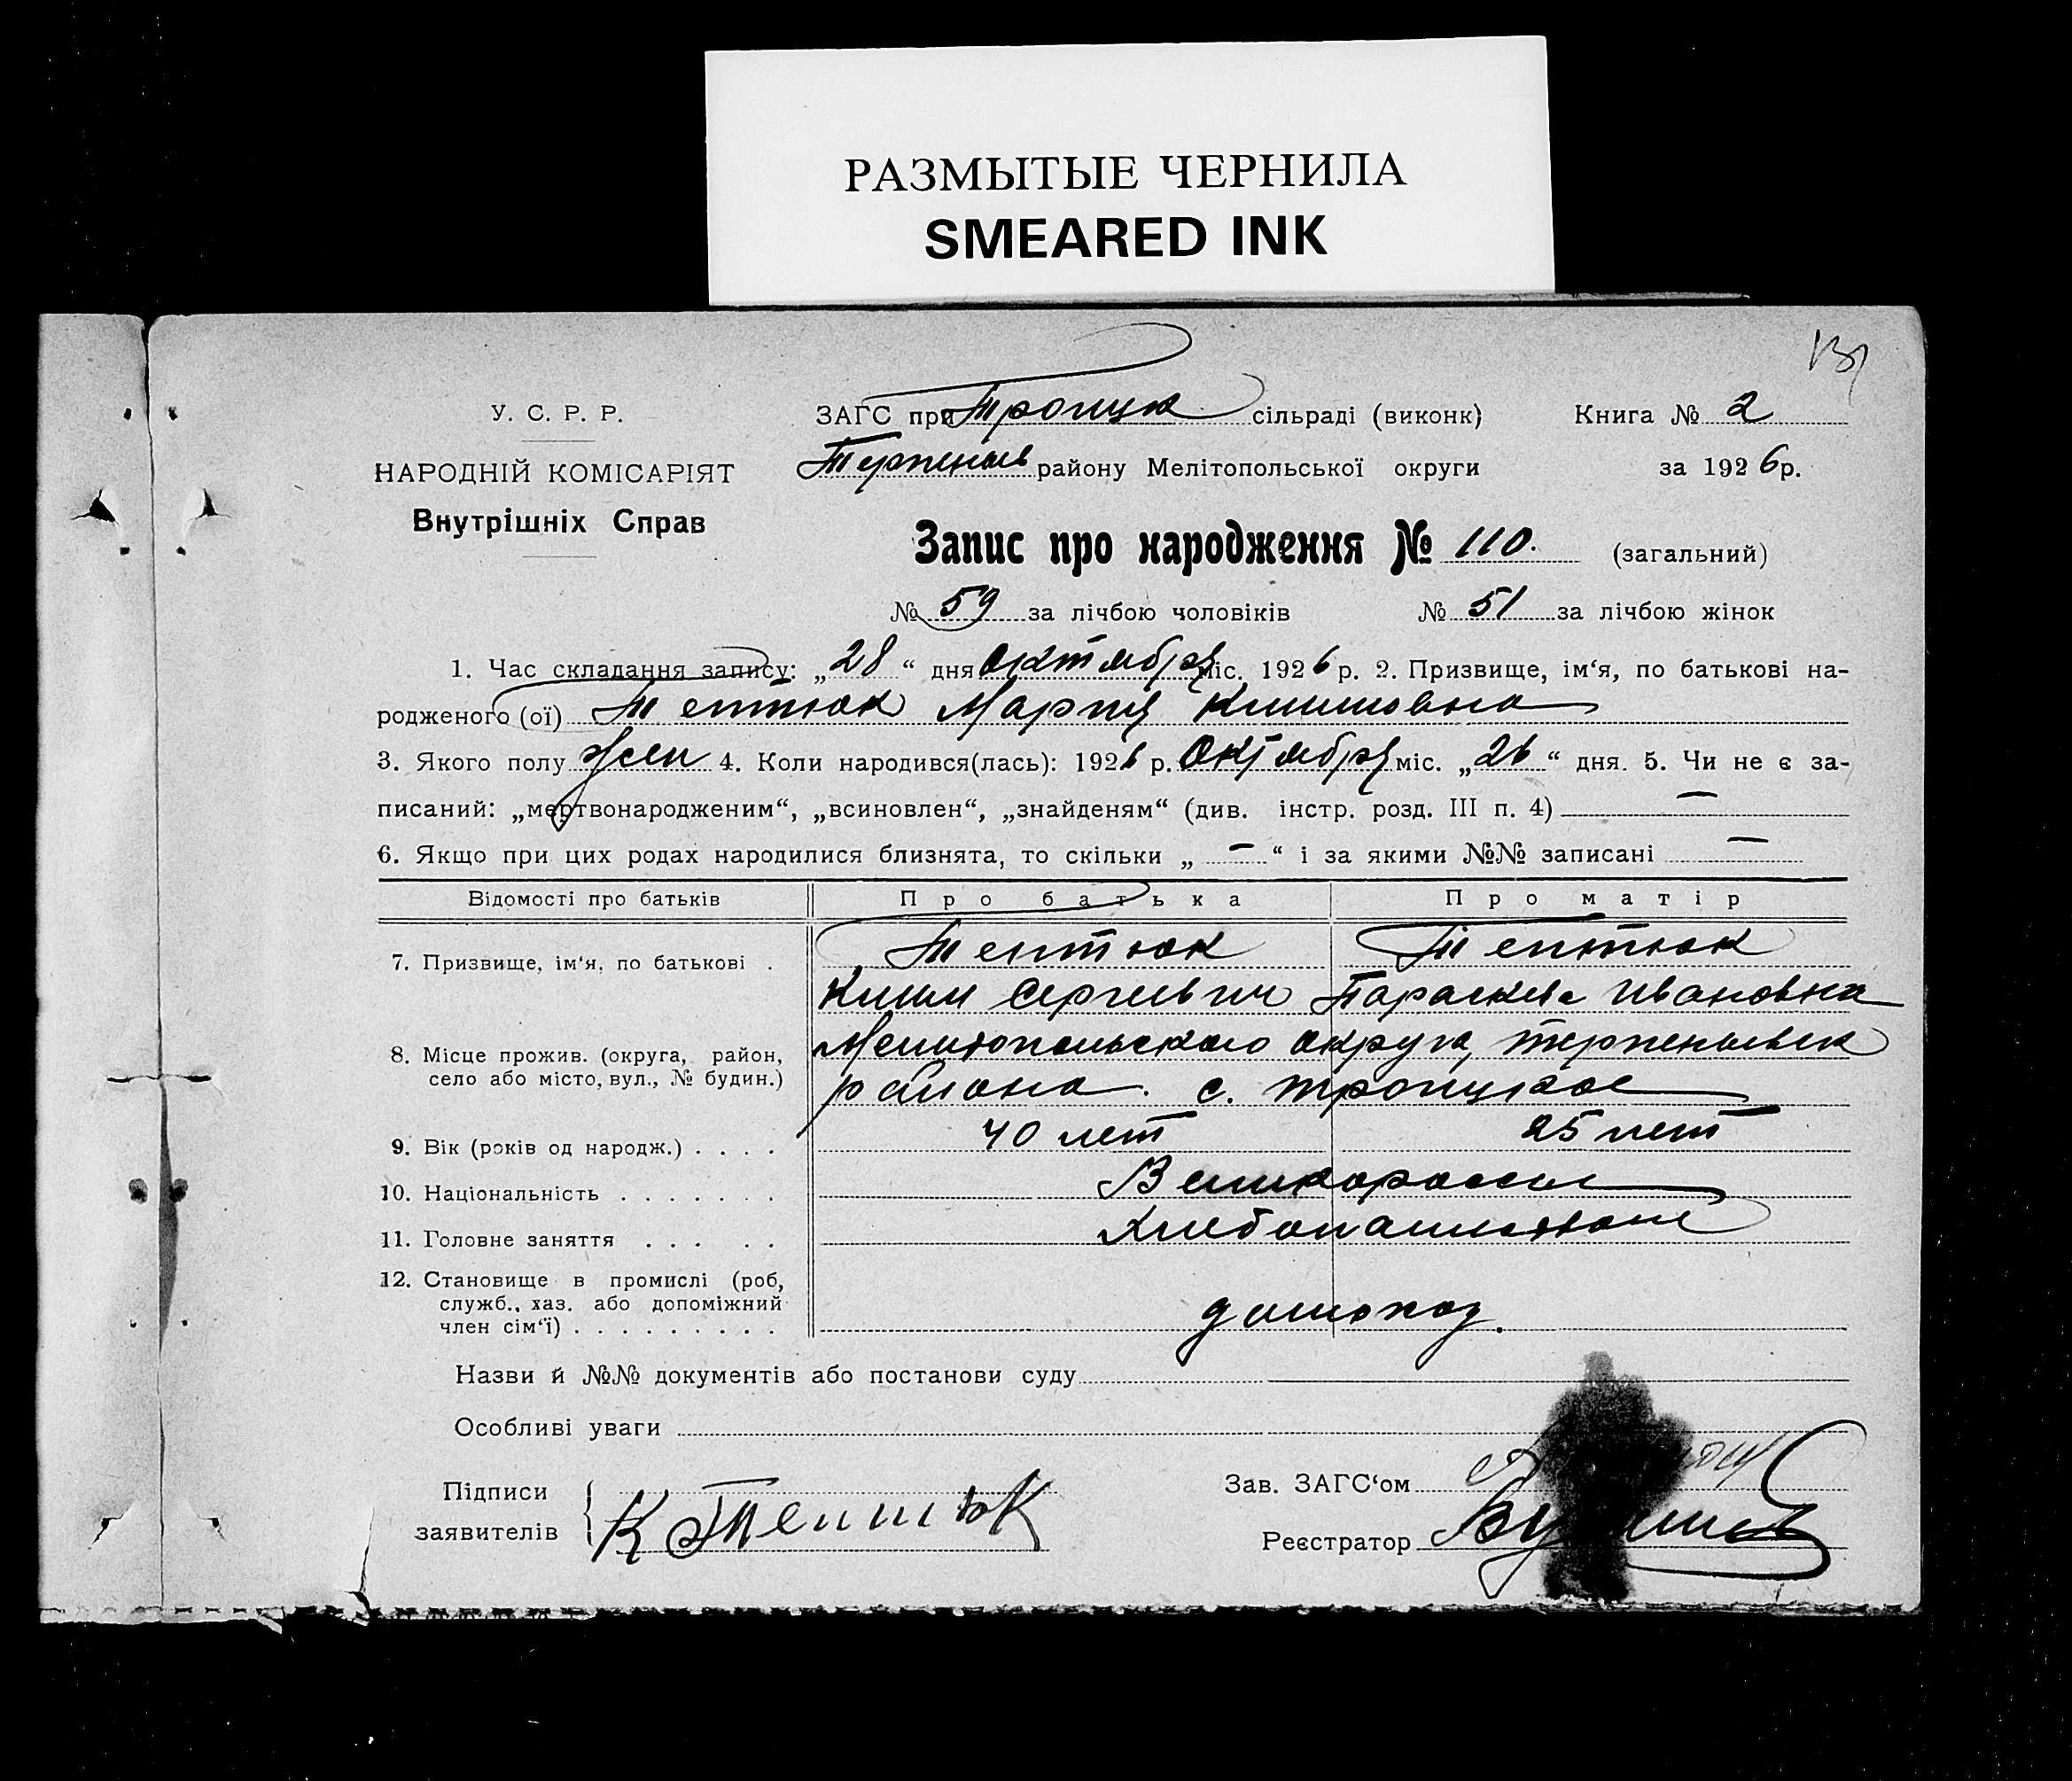 РАЗМЫТЫЕ ЧЕРНИЛА
SMEARED INK
У. С. Р. Р.
НАРОДНІЙ КОМІСАРІЯТ
Внутрішніх Справ
ЗАГС при Троицк сільраді (виконк) Книга № 2
району Мелітопольської округи за 1926 р.
Запис про народження № 110. (загальний)
№ 59 за лічбою чоловіків № 51 за лічбою жінок
1. Час складання запису: „28“ дня Октября міс. 1926 р. 2. Призвище, ім‘я, по батькові на-
родженого (ої) Тептюк Мария
3. Якого полу Жен 4. Коли народився(лась): 1926 р. Октября міс. „26“ дня. 5. Чи не є за-
писаний: „мертвонародженим“, „всиновлен“, „знайденям“ (див. інстр. розд. III п. 4) —
6. Якщо при цих родах народилися близнята, то скільки „ — “ і за якими №№ записані —
Відомості про батьків Про батька Про матір
7. Призвище, ім‘я, по батькові . Тептюк Тептюк
Сергеевич Параскева Ивановна
8. Місце прожив. (округа, район, село або місто, вул., № будин.) Мелитопольского округа,
района. с. Троицкое
9. Вік (років од народж.) . . . . 40 лет 25 лет
10. Національність . . . . . . . Великороссы
11. Головне заняття . . . . . Хлебопашество
12. Становище в промислі (роб,
служб., хаз. або допоміжний
член сім‘ї) . . . . . . . . .
Назви й №№ документів або постанови суду
Особливі уваги
Підписи
заявителів К Тептюк
Зав. ЗАГС‘ом
Реєстратор